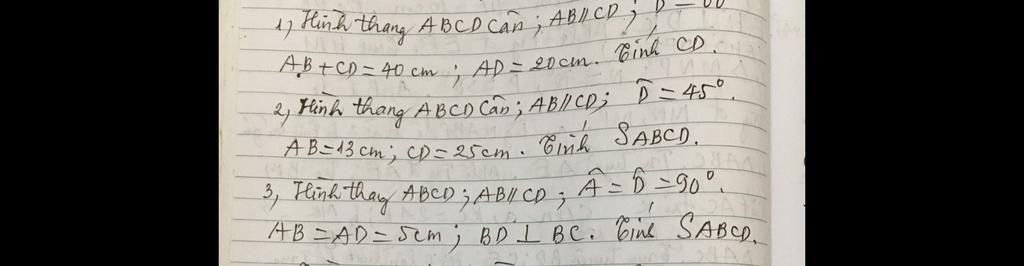 1, Hình thang ABCD cân; AB//CD;
AB+CD=40 cm; AD=20cm. Tính CD.
2, Hình thang ABCD cân; AB//CD; D̂=45°.
AB=13cm; CD=25cm. Tính SABCD.
3, Hình thay ABCD; AB//CD; Â=D̂=90°.
AB=AD=5cm; BD⊥BC. Tính SABCD.